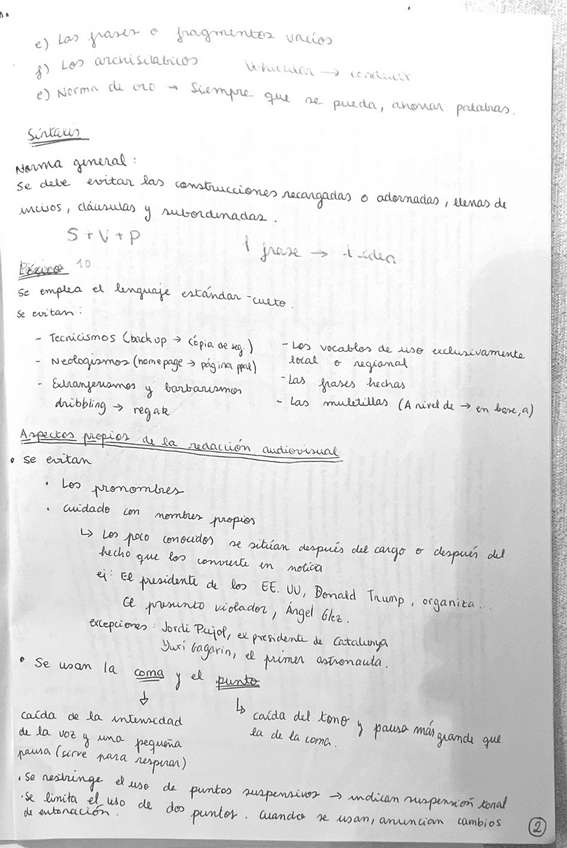 e) Las frases o fragmentos vacíos
f) Los archisilábicos → conducir
e) Norma de oro → Siempre que se pueda, ahorrar palabras.
Sintaxis
Norma general:
Se debe evitar las construcciones recargadas o adornadas, llenas de
incisos, cláusulas y subordinadas.
S+V+P
1 frase → 1 idea
Léxico 10
Se emplea el lenguaje estándar-culto.
Se evitan:
- Tecnicismos (back up → cópia de seg.)
- Neologismos (homepage → página ppal)
- Extranjerismos y barbarismos
dribbling → regate
- Los vocablos de uso exclusivamente
local o regional
- Las frases hechas
- Las muletillas (A nivel de → en base, a)
Aspectos propios de la redacción audiovisual
• Se evitan
• Los pronombres
• Cuidado con nombres propios
↳ Los poco conocidos se sitúan después del cargo o después del
hecho que los convierte en noticia
ej: El presidente de los EE.UU, Donald Trump, organiza...
El presunto violador, Ángel Glez.
excepciones: Jordi Pujol, ex presidente de Catalunya
Yuri Gagarin, el primer astronauta.
• Se usan la coma y el punto
↓
caída de la intensidad
de la voz y una pequeña
pausa (sirve para respirar)
↳ caída del tono y pausa más grande que
la de la coma.
• Se restringe el uso de puntos suspensivos → indican suspensión tonal
• Se limita el uso de dos puntos. Cuando se usan, anuncian cambios
de entonación.
2